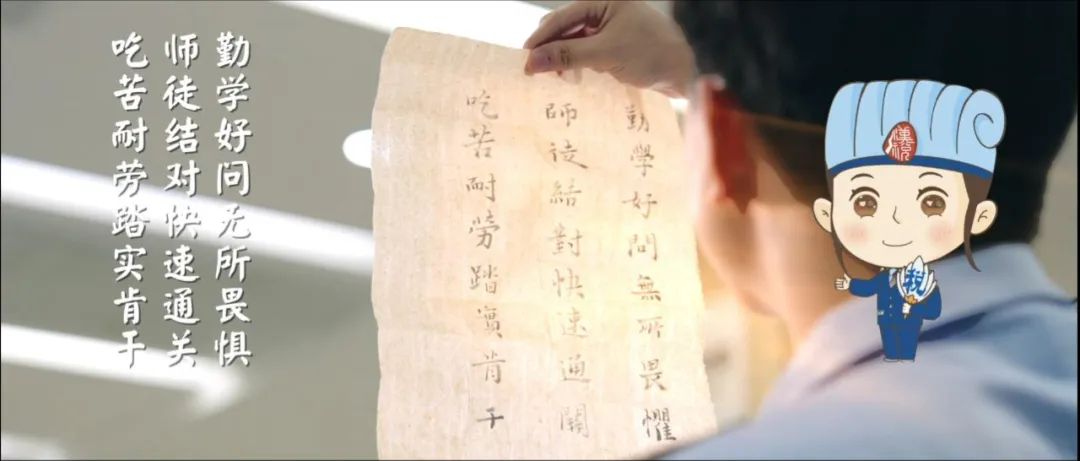 勤学好问无所畏惧
师徒结对快速通关
吃苦耐劳踏实肯干
勤學好問無所畏懼
師徒結對快速通關
吃苦耐勞踏實肯干